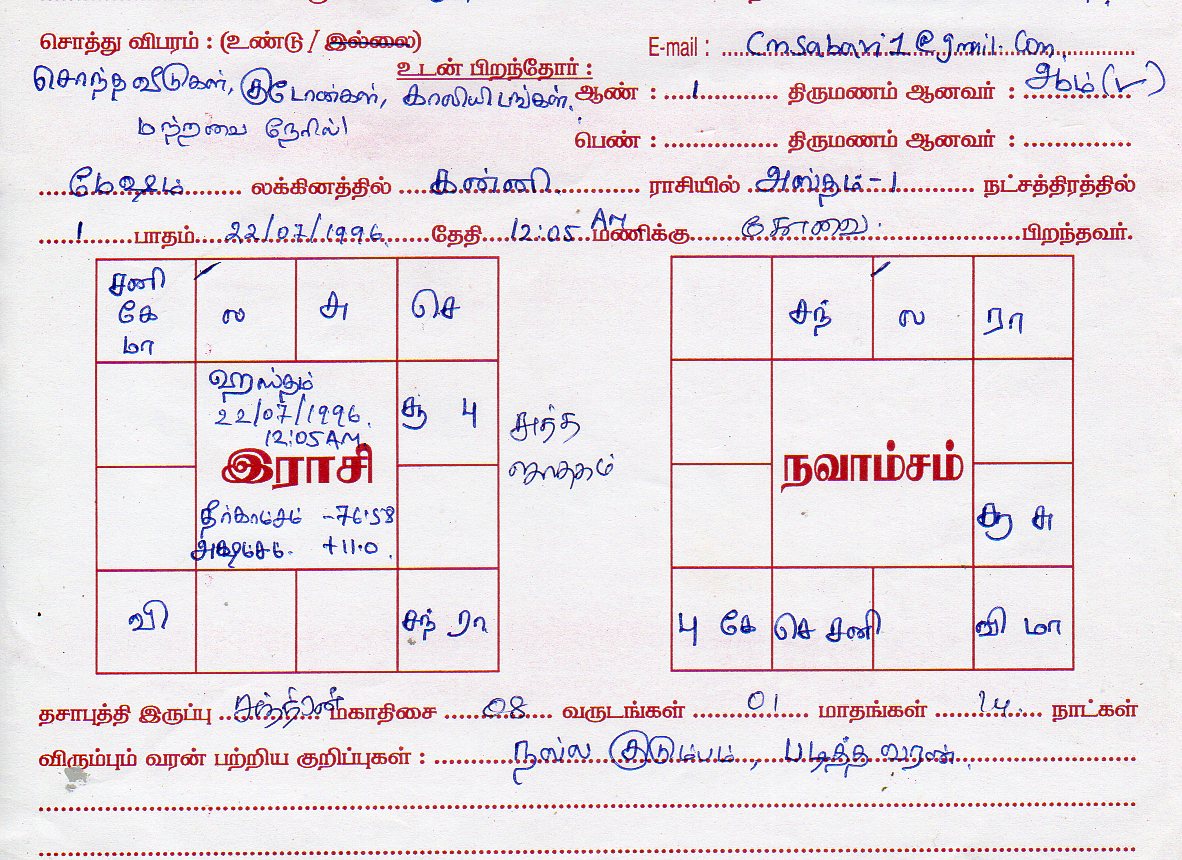 சொத்து விபரம் : (உண்டு / இல்லை)
E-mail : cmsabari1@gmail.com
சொந்த வீடுகள், குடோன்கள், காலியிடங்கள்,
உடன் பிறந்தோர் :
ஆண் : 1 திருமணம் ஆனவர் : ஆம் (1)
மற்றவை நேரில்
பெண் : திருமணம் ஆனவர் :
மேஷம் லக்கினத்தில் கன்னி ராசியில் அஸ்தம் - 1 நட்சத்திரத்தில்
1 பாதம் 22/07/1996 தேதி 12:05 AM மணிக்கு கோவை. பிறந்தவர்.
சனி கே மா
ல
அ
செ
சந்
ல
ரா
ஹஸ்தம்
22/07/1996.
12:05 AM
சூ பு
சுத்த
ஜாதகம்
இராசி
நவாம்சம்
தீர்காம்சம் -76.58
அக்ஷாம்சம். +11.0.
சூ சு
வி
சந் ரா
பு கே
செ சனி
வி மா
தசாபுத்தி இருப்பு சந்திரன் மகாதிசை 08 வருடங்கள் 01 மாதங்கள் 14 நாட்கள்
விரும்பும் வரன் பற்றிய குறிப்புகள் : நல்ல குடும்பம், படித்த வரன்.